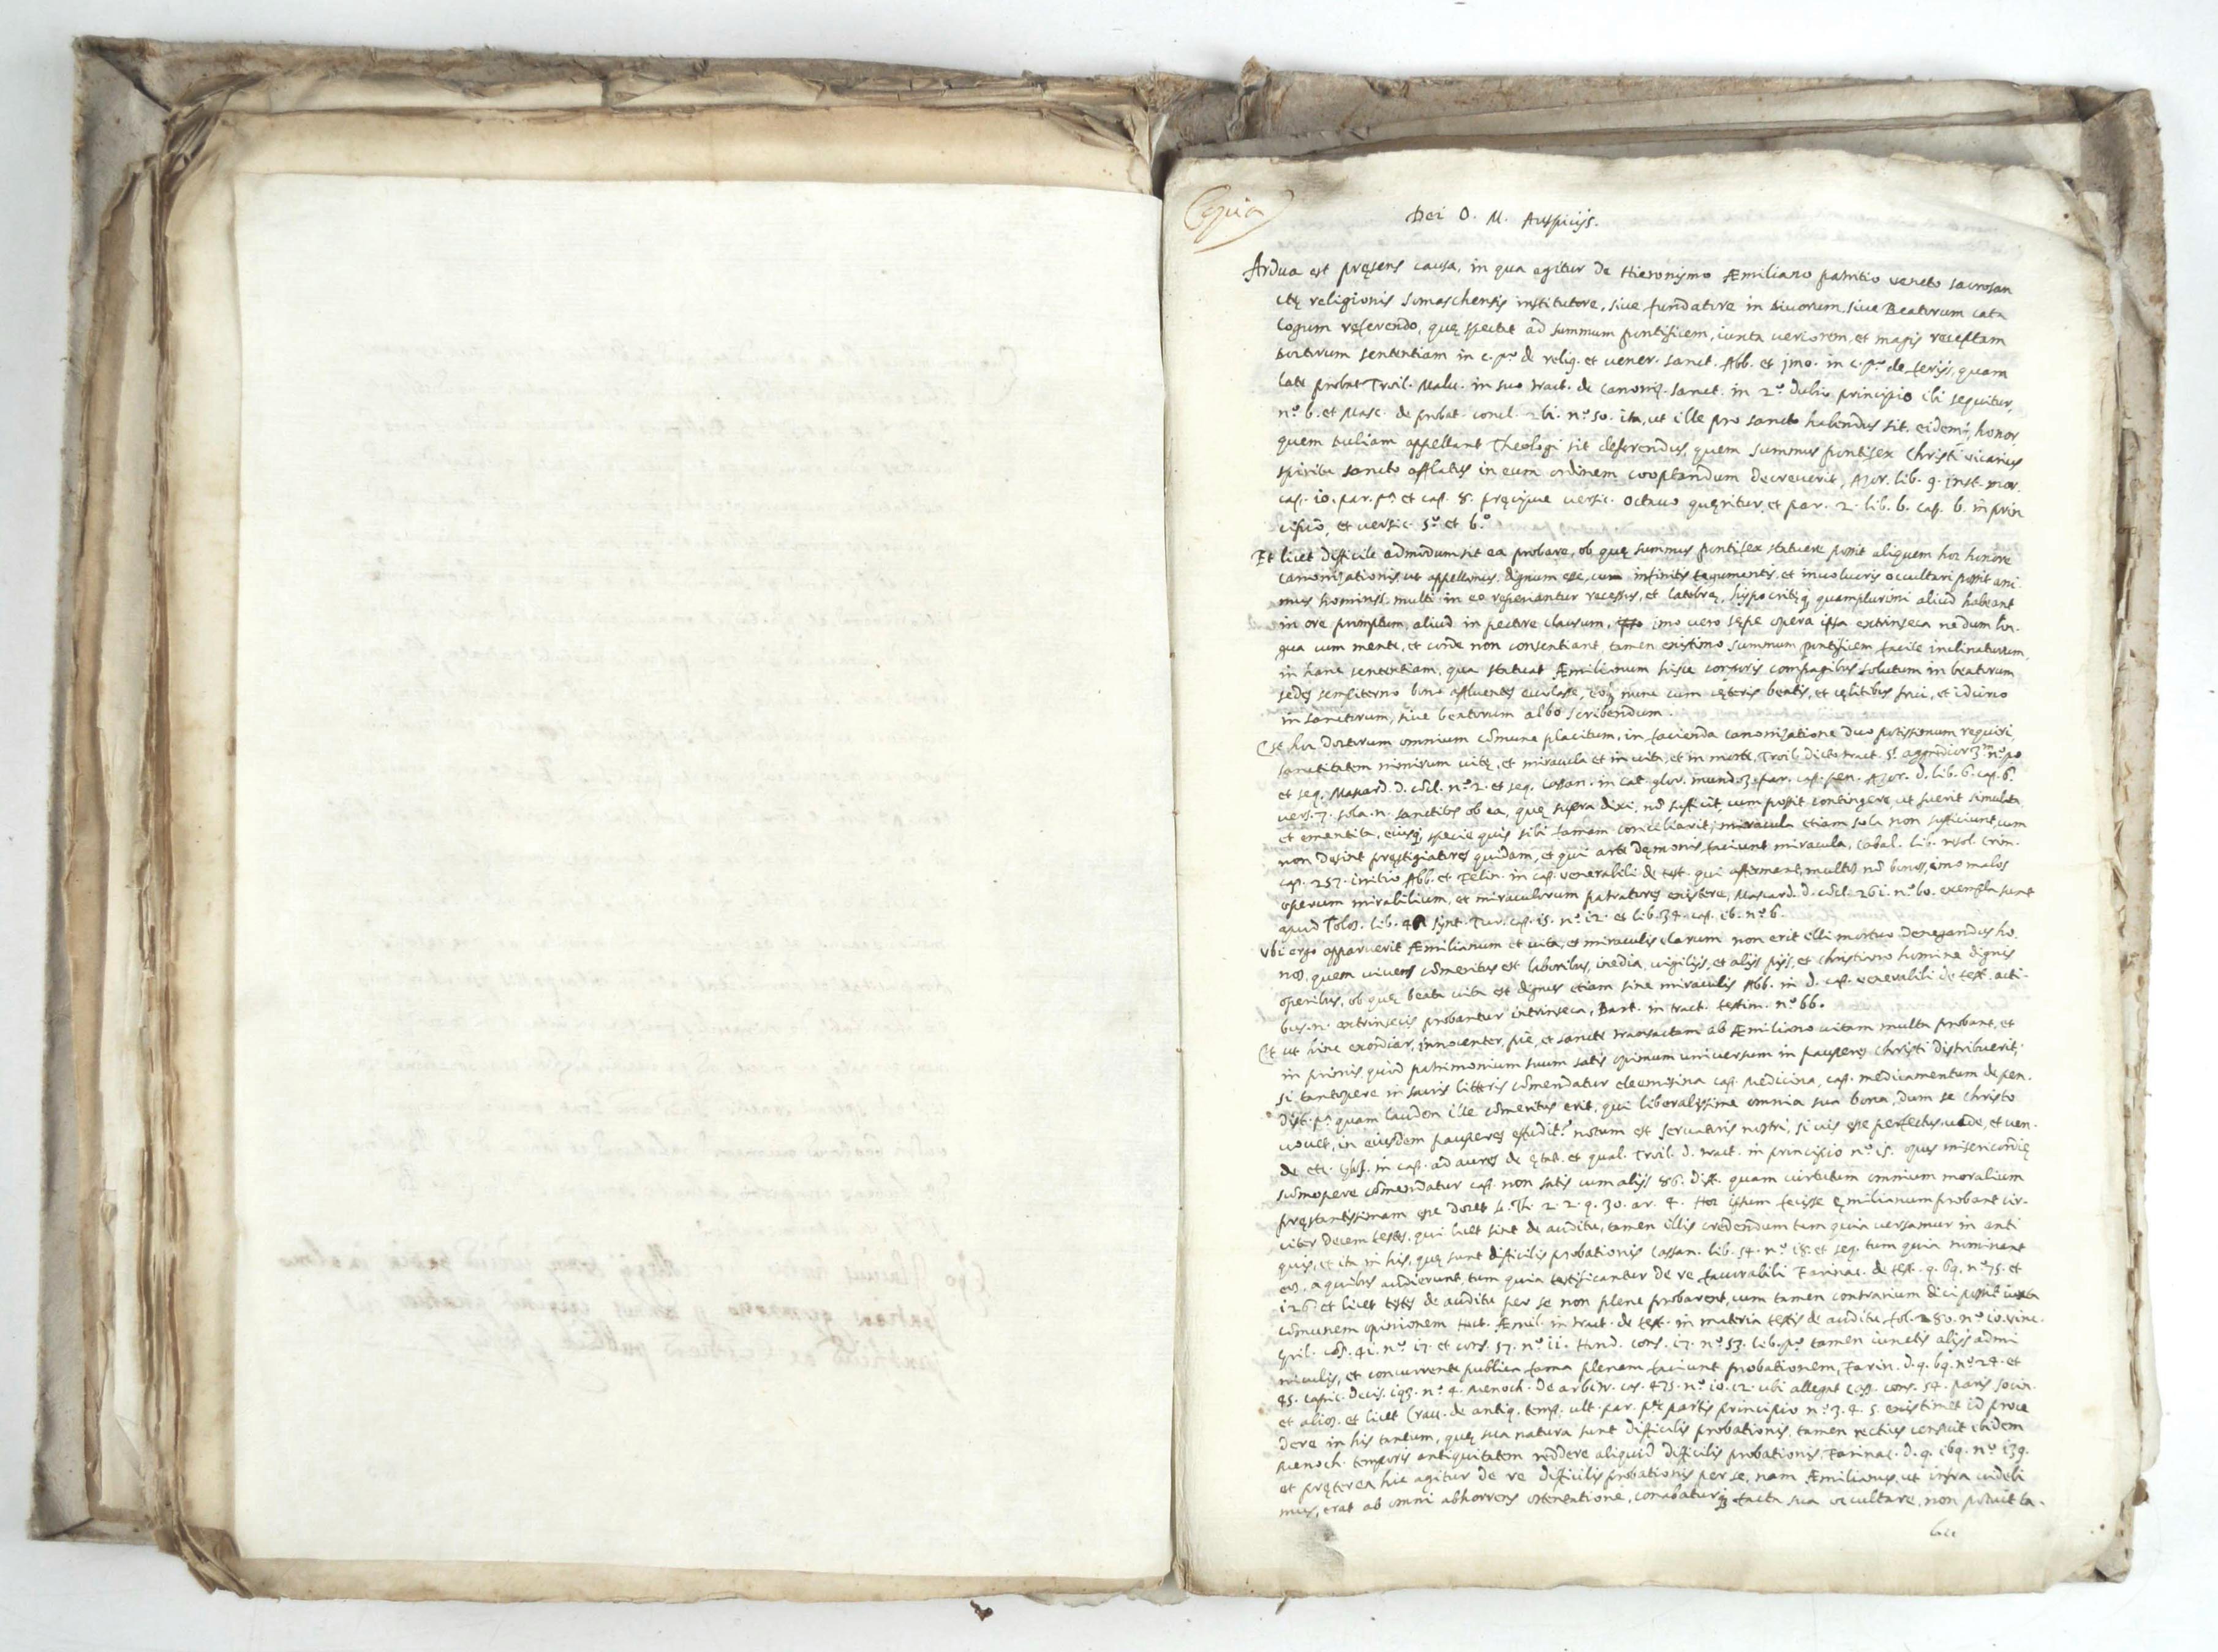 Copia
Dei O. M. Auspicijs.
Ardua est pręsens causa, in qua agitur de Hieronymo Æmiliano patritio veneto sacrosan
ctę religionis Somaschensis institutore, sive fundatore in Divorum, sive Beatorum cata
logum referendo, quę spectat ad summum pontificem, iuxta veriorem, et magis receptam
Doctorum sententiam in c. pº de reliq. et vener. sanct. Abb. et jmo. in c. pº de ferijs, quam
late probat Troil. Malv. in suo tract. de canoniz. sanct. in 2º dubio principio ibi sequitur,
nº 6. et Masc. de probat. concl. 261. nº 50. ita, ut ille pro sancto habendus sit, eidemq honor
quem duliam appellant Theologi sit deferendus, quem summus pontifex Christi vicarius
spiritu sancto afflatus in eum ordinem cooptandum decreverit, Azor. lib. 9. inst. mor.
cap. 10. par. pª et cap. 8. pręcipue versic. octavo quęritur, et par. 2. lib. 6. cap. 6. in prin
cipio, et versic. 5º et 6.º
Et licet difficile admodum sit ea probare, ob quę summus pontifex statuere possit aliquem hoc honore
canonizationis ut appellamus, dignum esse, cum infinitis tegumentis, et involucris occultari possit ani
mus hominis, multi in eo reperiantur recessus, et latebrę, hypocritęq quamplurimi aliud habeant
in ore promptum, aliud in pectore clausum, imo vero sępe opera ipsa extrinseca nedum lin-
gua cum mente, et corde non consentiant, tamen existimo summum pontificem facile inclinaturum
in hanc sententiam, qua statuat Æmilianum hisce corporis compagibus solutum in beatorum
sedes sempiterno bono affluentes evolasse, eoq nunc cum cęteris beatis, et cęlitibus frui, et idcirco
in sanctorum, sive beatorum albo scribendum.
Est hoc doctorum omnium comune placitum, in facienda canonizatione duo potissimum requiri,
sanctitatem nimirum vitę, et miracula et in vita, et in morte, Troil. dicto tract. 5. aggredior 3m nº po
et seq. Mascard. d. cocl. nº 2. et seq. Cassan. in cat. glor. mund. 3. par. cap. pen. Azor. d. lib. 6. cap. 6.
vers. 7. sola .n. sanctitas ob ea, quę supra dixi, no sufficit, cum possit contingere, ut fuerit simulata
et ementita, eiusq specie quis sibi famam conciliarit; miracula etiam sola non sufficiunt, cum
non desint pręstigiatores quidam, et qui arte dęmonis faciunt miracula, Cabal. lib. resol. crim.
cap. 257. initio Abb. et Felin. in cap. venerabili de test. qui affirmant, multos no bonos, imo malos
operum mirabilium, et miraculorum patratores existere, Mascard. d. cocl. 261. nº 60. exempla sunt
apud Tolos. lib. synt. Iur. cap. 15. nº 12. et lib. 34. cap. 16. nº 6.
Ubi ergo apparuerit Æmilianum et vita, et miraculis clarum non erit illi mortuo denegandus ho
nos, quem vivens comeritus est laboribus, inedia, vigilijs, et alijs pijs, et christiano homine dignis
operibus, ob quę beata vita est dignus etiam sine miraculis Abb. in d. cap. venerabili de test. acti-
bus .n. extrinsecis probantur intrinseca, Bart. in tract. testim. nº 66.
Et ut hinc exordiar, innocenter, pie, et sancte transactam ab Æmiliano vitam multa probant, et
in primis, quod patrimonium suum satis opimum universum in pauperes Christi distribuerit;
si tantopere in sacris litteris comendatur eleemosina cap. Medicina, cap. medicamentum de pen.
dist. pª quam laudem ille comeritus erit, qui liberalissime omnia sua bona, dum se Christo
vovet, in eiusdem pauperes effudit? notum est servatoris nostri, si vis esse perfectus, vade, et ven-
de etc. glos. in cap. ad aures de ętat. et qual. Troil. d. tract. in principio nº 15. opus misericordię
sumopere comendatur cap. non satis cum alijs 86. dist. quam virtutum omnium moralium
pręstantissimam esse docet S. Th. 2. 2. q. 30. ar. 4. Hoc ipsum fecisse Ęmilianum probant cir-
citer decem testes, qui licet sint de auditu, tamen illis credendum tum quia versamur in anti
quis, et ita in his, quę sunt difficilis probationis Cassan. lib. 54. nº 18. et seq. tum quia nominant
eos, a quibus audierunt, tum quia testificantur de re favorabili Farinac. de test. q. 69. nº 75. et
126. et licet testes de auditu per se non plene probarent, cum tamen contrarium dici possit iuxta
comunem opinionem Hect. Æmil. in tract. de test. in materia testis de auditu fol. 280. nº 10. vinc.
nº 17. et cons. 57. nº 11. Hond. cons. 17. nº 53. lib. pº tamen iunctis alijs admi
niculis, et concurrente publica fama plenam faciunt probationem, Farin. d. q. 69. nº 24. et
45. Capic. decis. 193. nº 4. Menoch. de arbitr. cas. 475. nº 10. 12. ubi allegat
et alios. et licet Crav. de antiq. temp. ult. par. pę partis principio nº 3. 4. 5. existimet id proce
dere in his tantum, quę sua natura sunt difficilis probationis, tamen rectius censuit ibidem
Menoch. temporis antiquitatem reddere aliquid difficilis probationis, Farinac. d. q. 69. nº 139.
et pręterea hic agitur de re difficilis probationis per se, nam Æmilianus, ut infra videbi
mus, erat ab omni abhorrens ostentatione, conabaturq facta sua occultare, non potuit ta-